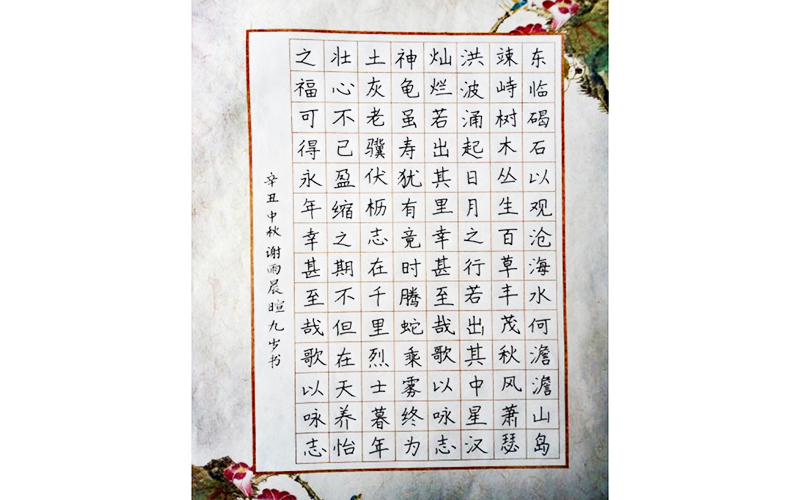 东临碣石以观沧海水何澹澹山岛
竦峙树木丛生百草丰茂秋风萧瑟
洪波涌起日月之行若出其中星汉
灿烂若出其里幸甚至哉歌以咏志
神龟虽寿犹有竟时腾蛇乘雾终为
土灰老骥伏枥志在千里烈士暮年
壮心不已盈缩之期不但在天养怡
之福可得永年幸甚至哉歌以咏志
辛丑中秋谢雨晨暄九岁书